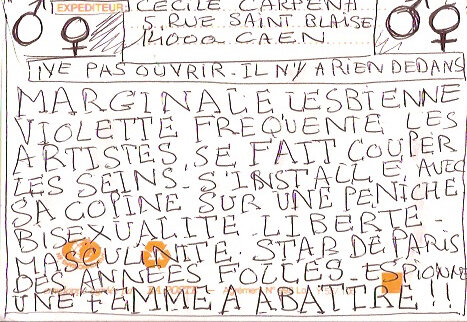 EXPEDITEUR
CECILE CARPENA
5, RUE SAINT BLAISE
14000 CAEN
NE PAS OUVRIR - IL N'Y A RIEN DEDANS
MARGINALE LESBIENNE
VIOLETTE FREQUENTE LES
ARTISTES, SE FAIT COUPER
LES SEINS - S'INSTALLE AVEC
SA COPINE SUR UNE PENICHE
BISEXUALITE - LIBERTE -
MASCULINITE. STAR DE PARIS
DES ANNEES FOLLES - ESPIONNE
UNE FEMME A ABATTRE !!